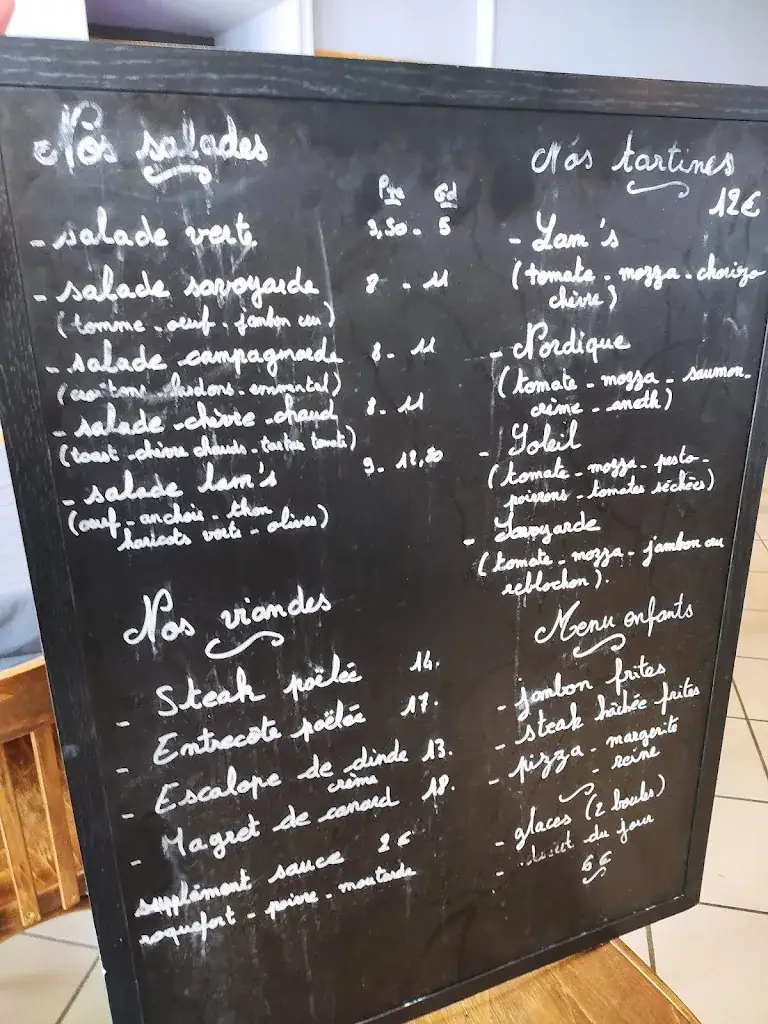 Nos salades
Pte Gd
- salade verte 3,50 - 5
- salade savoyarde 8 - 11
(tomme - oeuf - jambon cru)
- salade campagnarde 8 - 11
(croûtons - lardons - emmental)
- salade chèvre chaud 8 - 11
(toast - chèvre chauds - tomate)
- salade Lam's 9 - 12,50
(oeuf - anchois - thon
haricots verts - olives)
Nos tartines
12€
- Lam's
(tomate - mozza - chorizo
chèvre)
- Nordique
(tomate - mozza - saumon -
crème - aneth)
- Soleil
(tomate - mozza - pesto -
poivrons - tomates séchées)
- Savoyarde
(tomate - mozza - jambon cru
reblochon).
Nos viandes
- Steak poêlée 14.
- Entrecôte poêlée 17.
- Escalope de dinde 13.
crème
- Magret de canard 18.
supplément sauce 2€
roquefort - poivre - moutarde
Menu enfants
- jambon frites
- steak hâchée frites
- pizza - margerite
- reine
- glaces (2 boules)
- dessert du jour
6€